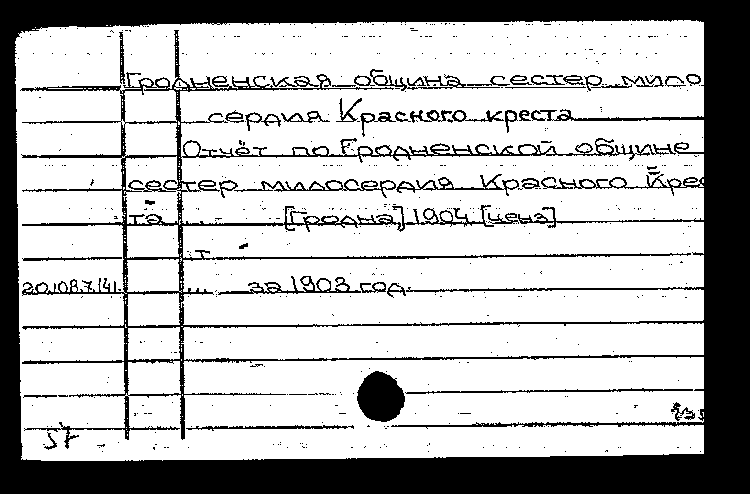 Гродненская община сестер мило
сердия Красного креста
Отчёт по Гродненской общине
сестер милосердия Красного Крес
та ... [Гродна,] 1904 [ценз]
т
20.108.7.141. ... за 1903 год.
57